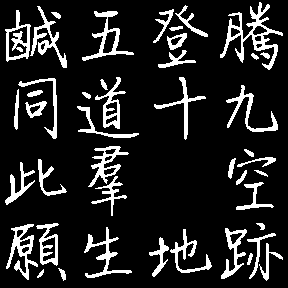 騰九空跡
登十地
五道羣生
鹹同此願